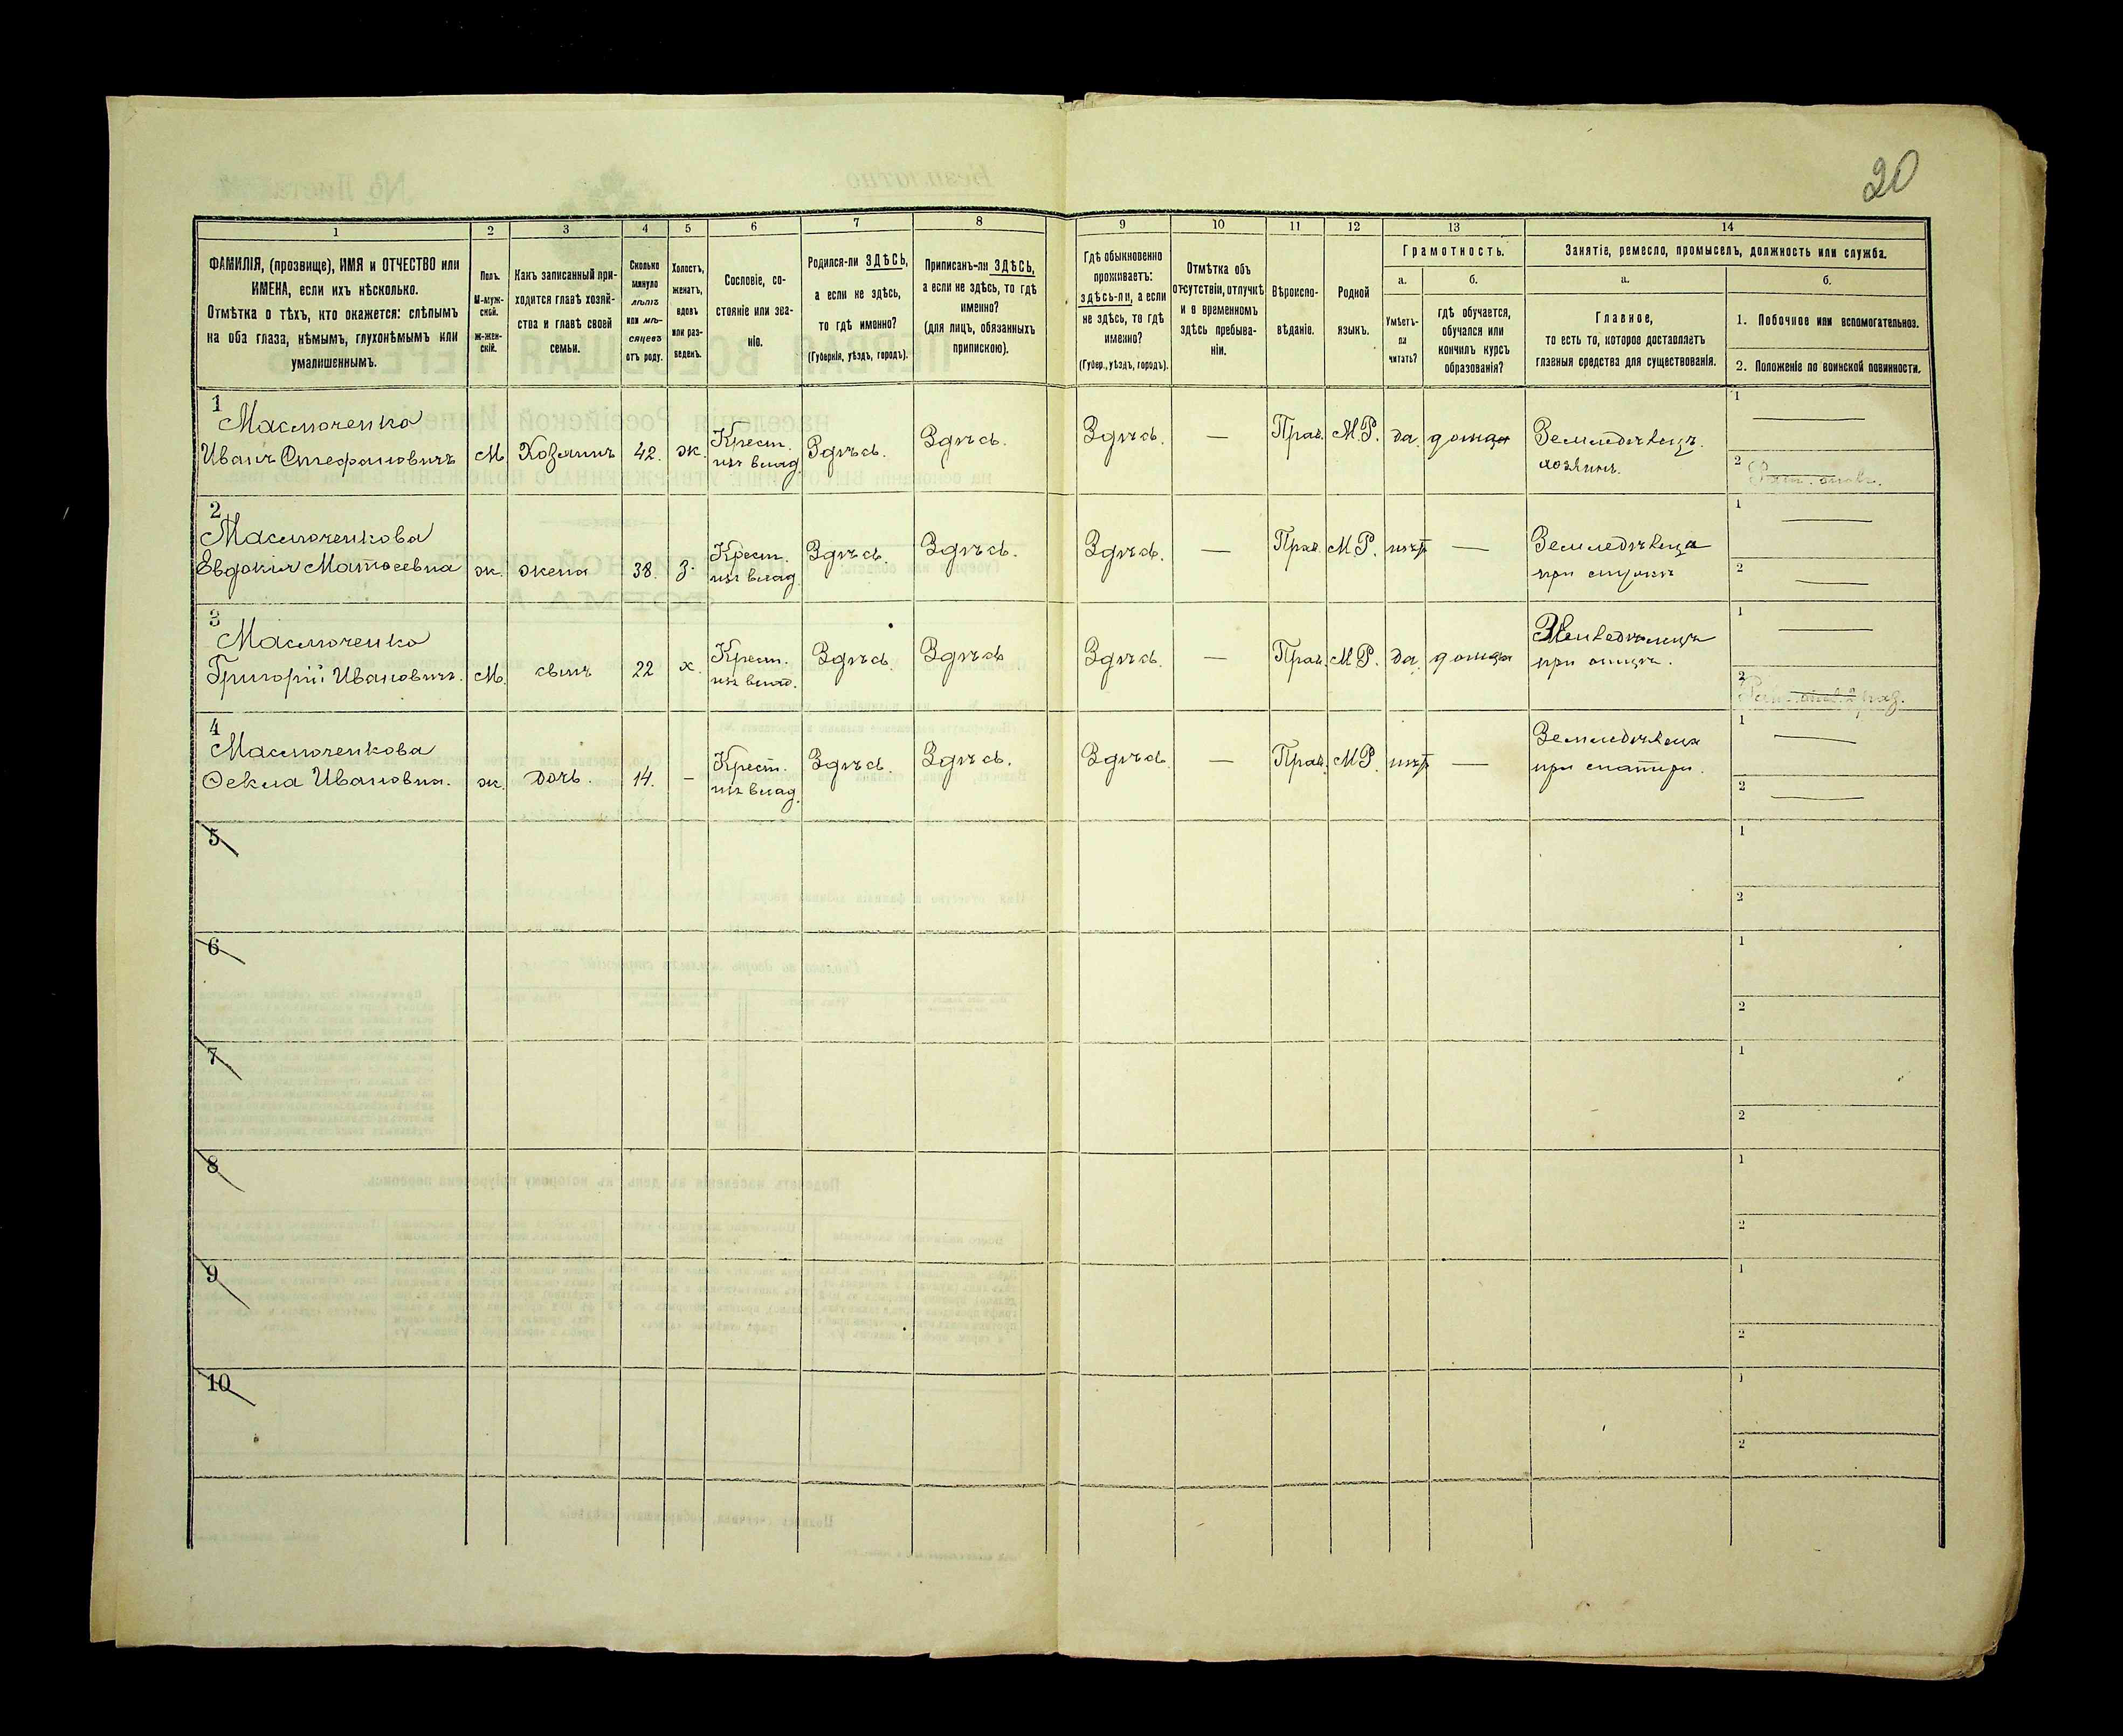 20
1 2 3 4 5 6 7 8 9 10 11 12 13 14
ФАМИЛІЯ, (прозвище), ИМЯ и ОТЧЕСТВО или
ИМЕНА, если ихъ нѣсколько.
Отмѣтка о тѣхъ, кто окажется: слѣпымъ
на оба глаза, нѣмымъ, глухонѣмымъ или
умалишеннымъ.
Полъ.
М-муж-
ской.
Ж-жен-
скій.
Какъ записанный при-
ходится главѣ хозяй-
ства и главѣ своей
семьи.
Сколько
минуло
лѣтъ
или мѣ-
сяцевъ
отъ роду.
Холостъ,
женатъ,
вдовъ
или раз-
веденъ.
Сословіе, со-
стояніе или зва-
ніе.
Родился-ли ЗДѢСЬ,
а если не здѣсь,
то гдѣ именно?
(Губернія, уѣздъ, городъ).
Приписанъ-ли ЗДѢСЬ,
а если не здѣсь, то гдѣ
именно?
(для лицъ, обязанныхъ
припискою).
Гдѣ обыкновенно
проживаетъ:
здѣсь-ли, а если
не здѣсь, то гдѣ
именно?
(Губер., уѣздъ, городъ).
Отмѣтка объ
отсутствіи, отлучкѣ
и о временномъ
здѣсь пребыва-
ніи.
Вѣроиспо-
вѣданіе.
Родной
языкъ.
Грамотность.
а.
Умѣетъ-
ли
читать?
б.
гдѣ обучается,
обучался или
кончилъ курсъ
образованія?
Занятіе, ремесло, промыселъ, должность или служба.
а.
Главное,
то есть то, которое доставляетъ
главныя средства для существованія.
б.
1. Побочное или вспомогательное.
2. Положеніе по воинской повинности.
1
Маслюченко
Иванъ Стефановичъ М Хозяинъ 42. ж. Крест. Здѣсь. Здѣсь. Здѣсь. — Прав. М.Р. да. дома Земледѣлецъ.
изъ влад. хозяинъ.
1
2
2
Маслюченкова
Евдокія Матвеевна ж. жена 38. З. Крест. Здѣсь. Здѣсь. Здѣсь. — Прав. М.Р. нѣт — Земледѣлица
изъ влад. при мужѣ
1
2
3
Маслюченко
Григорій Ивановичъ. М. сынъ 22 х. Крест. Здѣсь. Здѣсь Здѣсь. — Прав. М.Р. да. дома
изъ влад. при отцѣ.
1
2
4
Маслюченкова
Ѳекла Ивановна. ж. дочь. 14. — Крест. Здѣсь. Здѣсь. Здѣсь — Прав. М.Р. нѣт —
изъ влад. при матери.
1
2
5
1
2
6
1
2
7
1
2
8
1
2
9
1
2
10
1
2